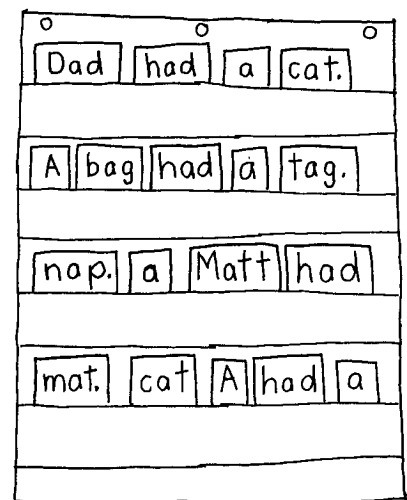 Dad had a cat.
A bag had a tag.
nap. a Matt had
mat. cat A had a